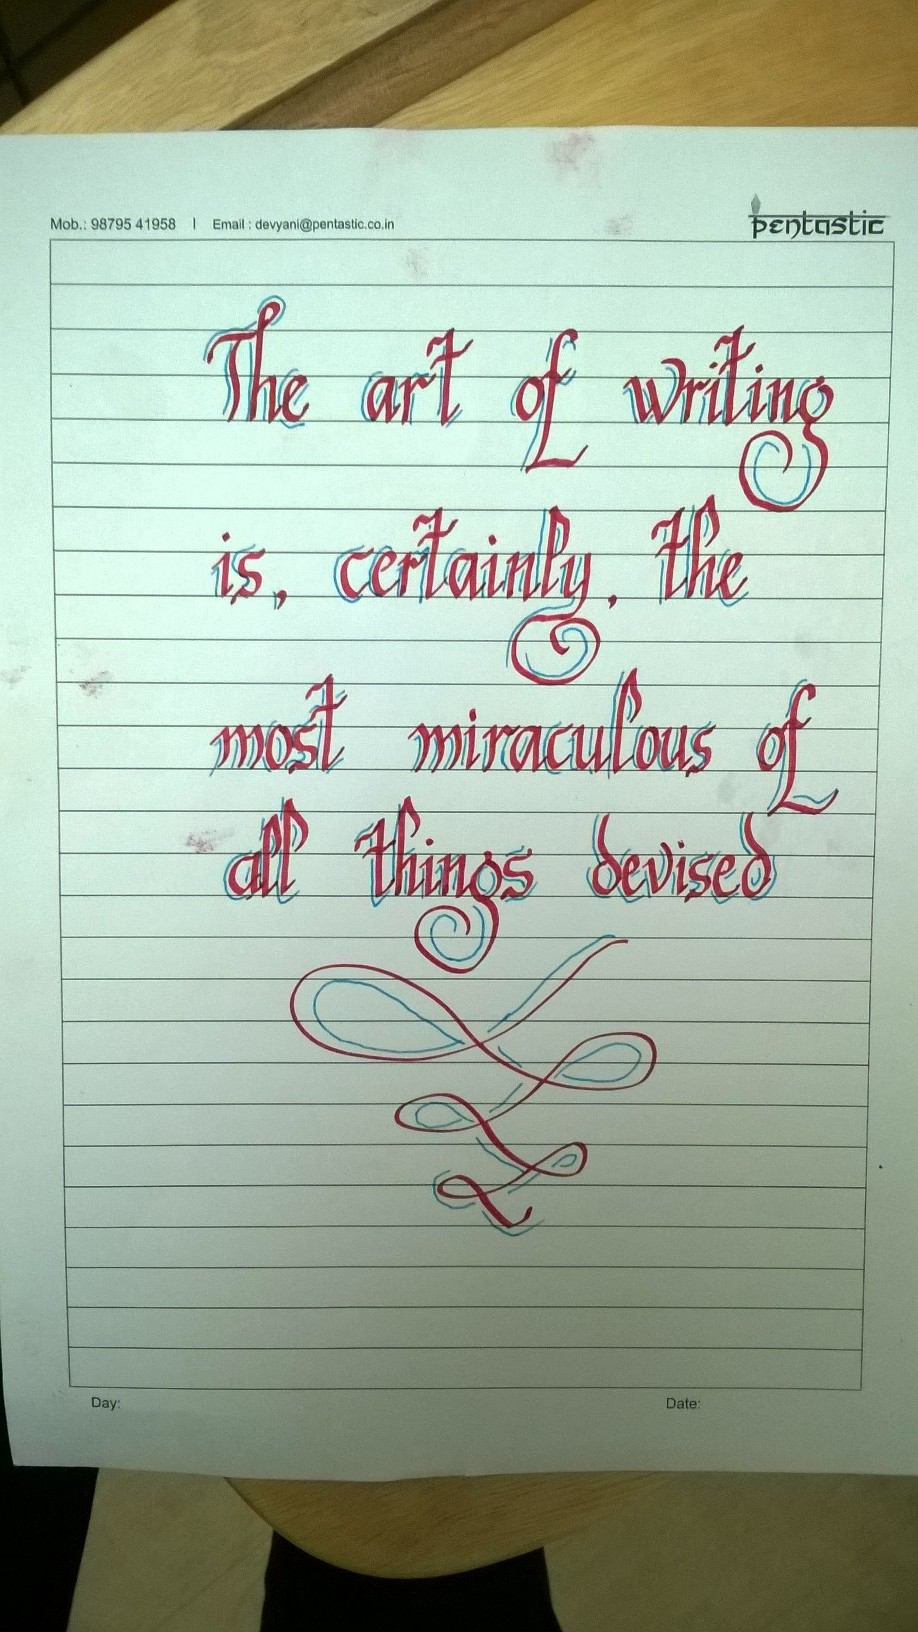 Mob.: 98795 41958 | Email : devyani@pentastic.co.in
pentastic
The art of writing
is, certainly, the
most miraculous of
all things devised
Day:
Date: